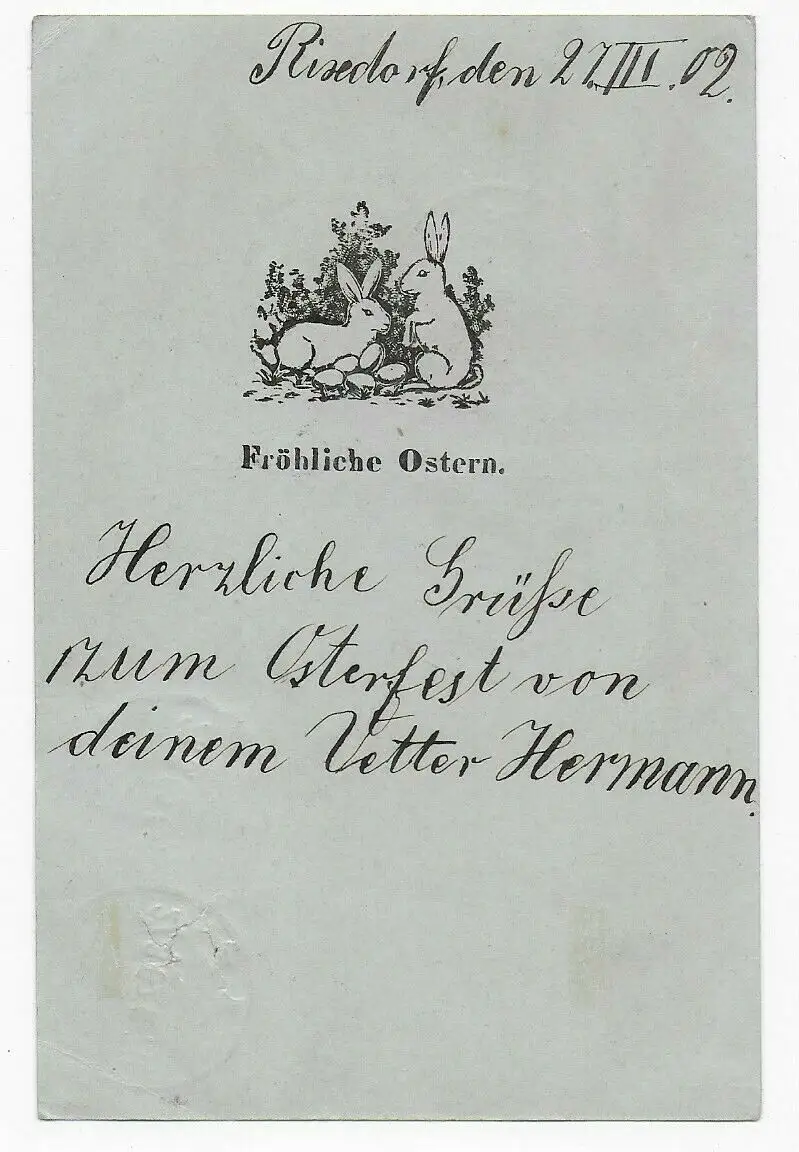 Rixdorf, den 27.III.02.
Fröhliche Ostern.
Herzliche Grüße
zum Osterfest von
deinem Vetter Hermann.